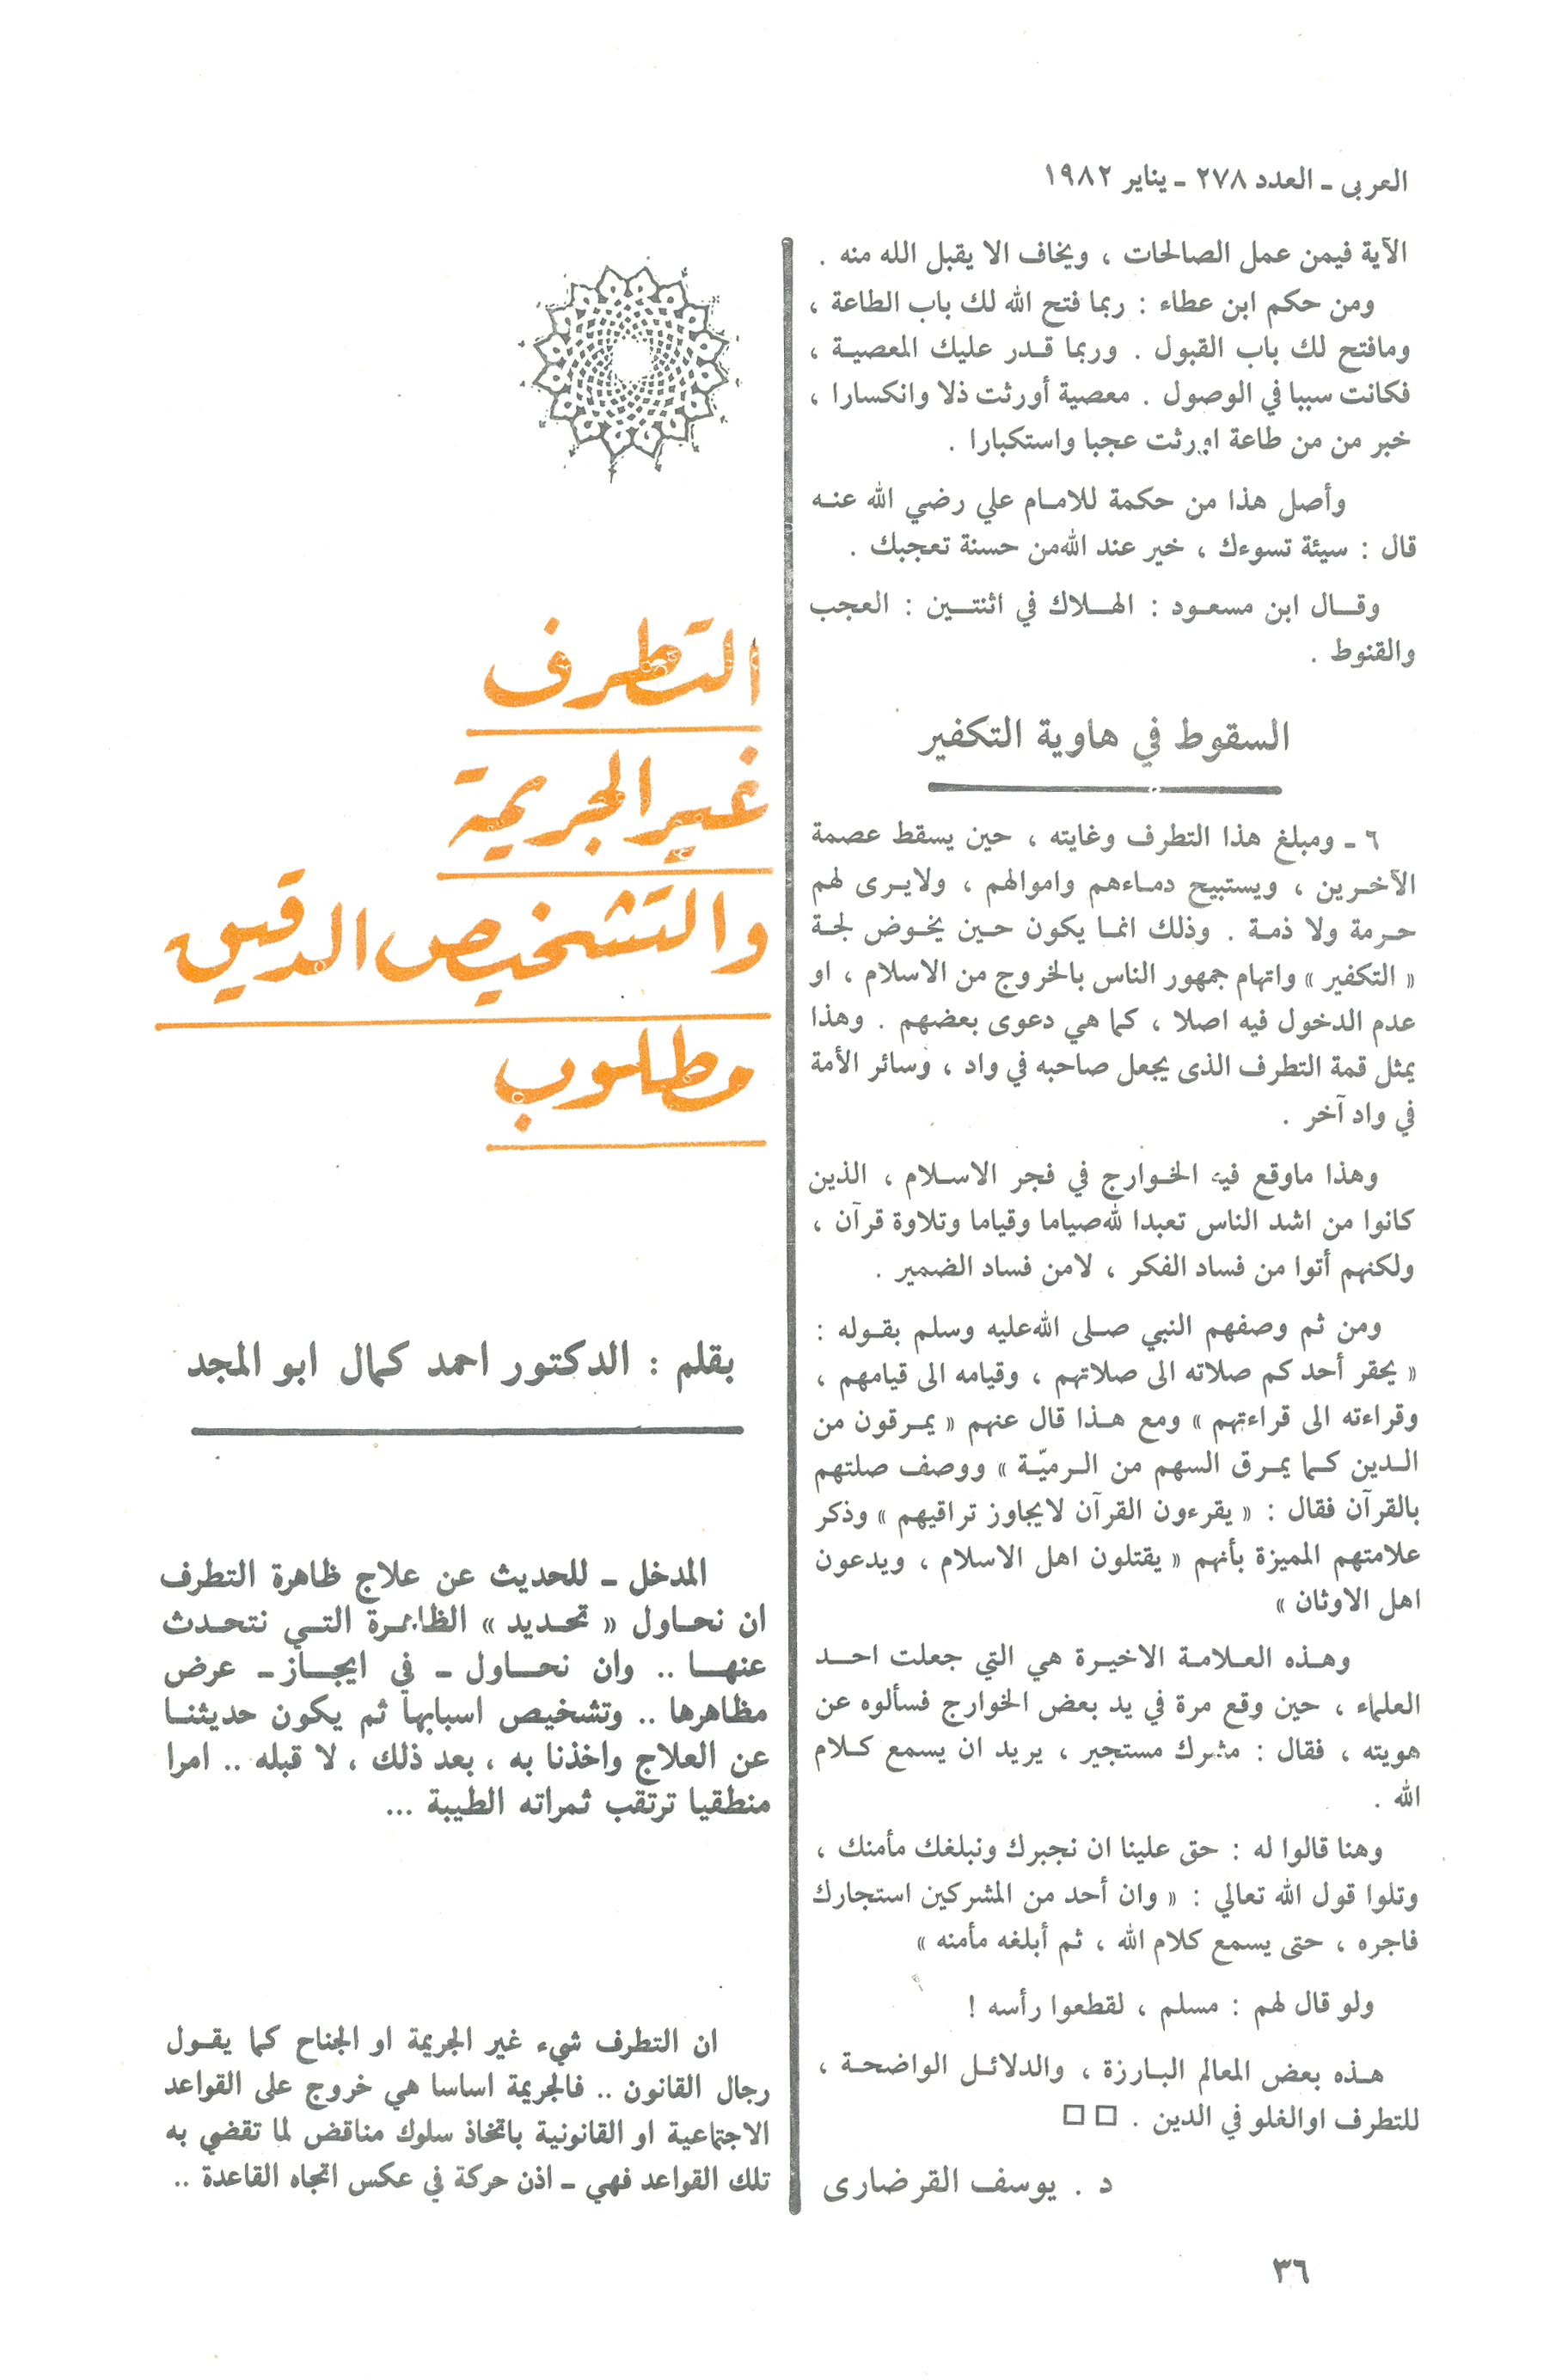 العربى ـ العدد ٢٧٨ ـ يناير ١٩٨٢
الآية فيمن عمل الصالحات ، ويخاف الا يقبل الله منه .
ومن حكم ابن عطاء : ربما فتح الله لك باب الطاعة ،
ومافتح لك باب القبول . وربما قدر عليك المعصية ،
فكانت سببا في الوصول . معصية أورثت ذلا وانكسارا ،
خبر من من طاعة اورثت عجبا واستكبارا .
وأصل هذا من حكمة للامام علي رضي الله عنه
قال : سيئة تسوءك ، خير عند الله من حسنة تعجبك .
وقال ابن مسعود : الهلاك في اثنتين : العجب
والقنوط .
السقوط في هاوية التكفير
٦ ـ ومبلغ هذا التطرف وغايته ، حين يسقط عصمة
الآخرين ، ويستبيح دماءهم واموالهم ، ولايرى لهم
حرمة ولا ذمة . وذلك انما يكون حين يخوض لجة
« التكفير » واتهام جمهور الناس بالخروج من الاسلام ، او
عدم الدخول فيه اصلا ، كما هي دعوى بعضهم . وهذا
يمثل قمة التطرف الذى يجعل صاحبه في واد ، وسائر الأمة
في واد آخر .
وهذا ماوقع فيه الخوارج في فجر الاسلام ، الذين
كانوا من اشد الناس تعبدا لله صياما وقياما وتلاوة قرآن ،
ولكنهم أتوا من فساد الفكر ، لامن فساد الضمير .
ومن ثم وصفهم النبي صلى الله عليه وسلم بقوله :
« يحقر أحدكم صلاته الى صلاتهم ، وقيامه الى قيامهم ،
وقراءته الى قراءتهم » ومع هذا قال عنهم « يمرقون من
الدين كما يمرق السهم من الرميّة » ووصف صلتهم
بالقرآن فقال : « يقرءون القرآن لايجاوز تراقيهم » وذكر
علامتهم المميزة بأنهم « يقتلون اهل الاسلام ، ويدعون
اهل الاوثان »
وهذه العلامة الاخيرة هي التي جعلت احد
العلماء ، حين وقع مرة في يد بعض الخوارج فسألوه عن
هويته ، فقال : مشرك مستجير ، يريد ان يسمع كلام
الله .
وهنا قالوا له : حق علينا ان نجيرك ونبلغك مأمنك ،
وتلوا قول الله تعالي : « وان أحد من المشركين استجارك
فاجره ، حتى يسمع كلام الله ، ثم أبلغه مأمنه »
ولو قال لهم : مسلم ، لقطعوا رأسه !
هذه بعض المعالم البارزة ، والدلائل الواضحة ،
للتطرف اوالغلو في الدين . □ □
د . يوسف القرضارى
التطرف
غير الجريمة
والتشخيص الدقيق
مطلوب
بقلم : الدكتور احمد كمال ابو المجد
المدخل ـ للحديث عن علاج ظاهرة التطرف
ان نحاول « تحديد » الظاهرة التي نتحدث
عنها .. وان نحاول ـ في ايجاز ـ عرض
مظاهرها .. وتشخيص اسبابها ثم يكون حديثنا
عن العلاج واخذنا به ، بعد ذلك ، لا قبله .. امرا
منطقيا ترتقب ثمراته الطيبة ...
ان التطرف شيء غير الجريمة او الجناح كما يقول
رجال القانون .. فالجريمة اساسا هي خروج على القواعد
الاجتماعية او القانونية باتخاذ سلوك مناقض لما تقضي به
تلك القواعد فهي ـ اذن حركة في عكس اتجاه القاعدة ..
٣٦